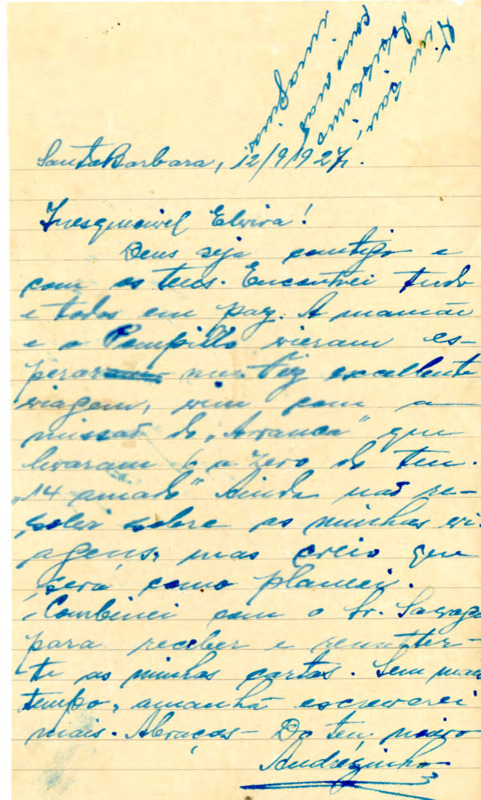 Santa Barbara, 12/9/927.
Inesquecivel Elvira!
Deus seja comtigo e
com os teus. Encontrei tudo
e todos em paz. A mamãe
e o Pompilio vieram es-
perar-me fiz excellente
viagem, vim com a
missão do "Arranca" que
levaram 6 a zero do teu
"14 amado" Ainda não re-
solvi sobre as minhas vi-
agens, mas creio que
será como planei.
Combinei com o Sr.
para receber e remetter-
te as minhas cartas. Sem mais
tempo, amanhã escreverei
mais. Abraços - Do teu noivo
Andrezinho